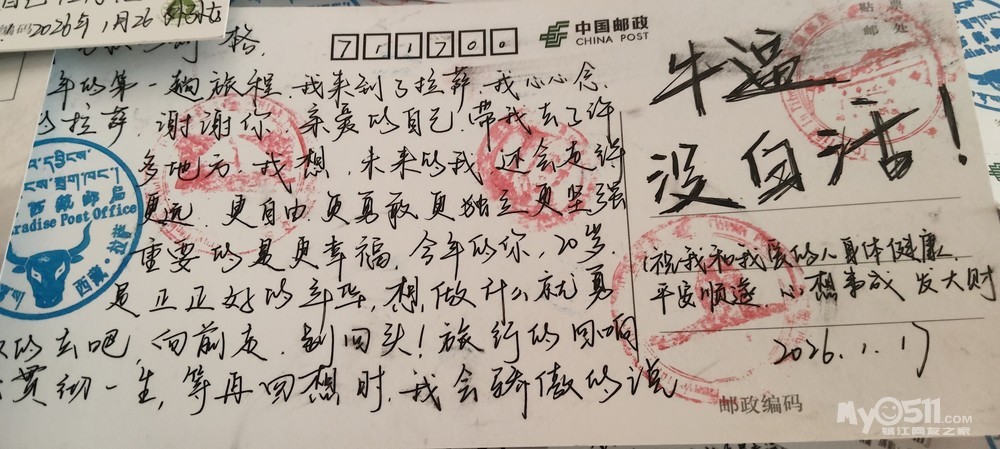 编码 2026年1月26
格.
711700
中国邮政
CHINA POST
贴 票
邮 处
年的第一趟旅程,我来到了拉萨,我心心念
拉萨,谢谢你,亲爱的自己,带我去了许
多地方,我想,未来的我还会走许
更远,更自由更勇敢更独立更坚强
重要的是更幸福,今年的你,20岁,
是正正好的年华,想做什么就勇
的去吧,向前走,别回头!旅行的回响
贯彻一生,等再回想时,我会骄傲的说
西藏邮局
radise Post Office
西藏·拉萨
牛逼
没白活!
祝我和我爱的人身体健康,
平安顺遂 心想事成 发大财
2026.1.17
邮政编码
My0511.COM
镇江网友之家